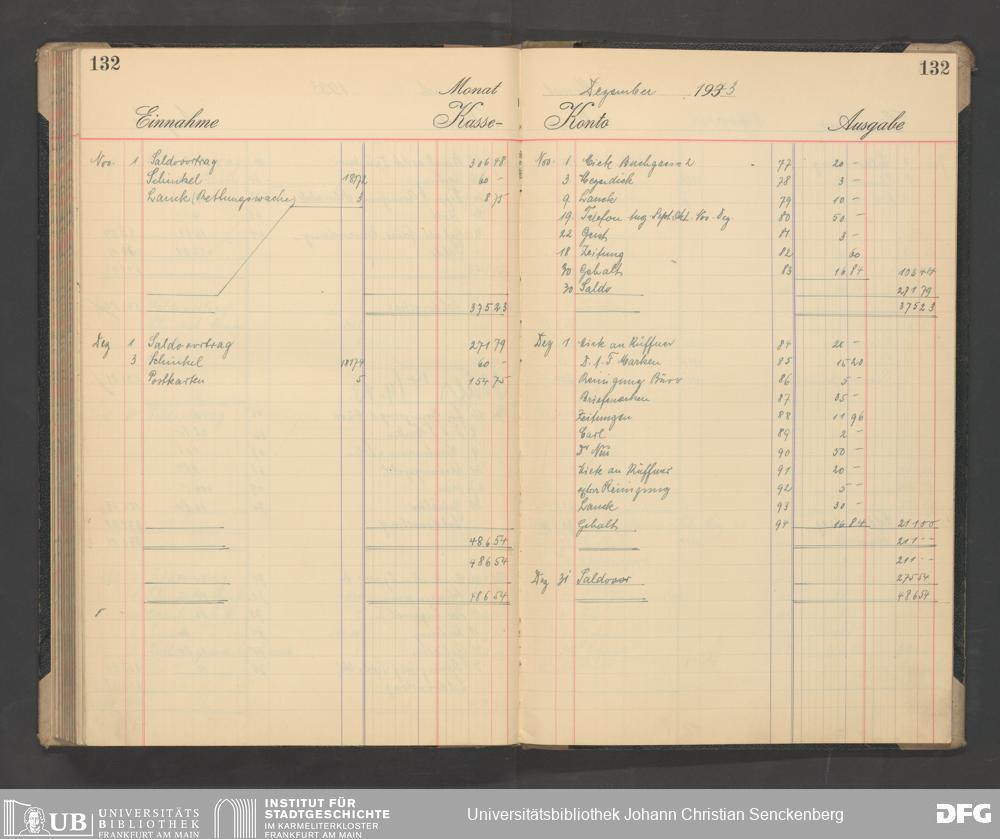 132
Monat
Einnahme
Kasse-
Nov. 1 Saldovortrag 306 48
Schinkel 18172 60 -
Lauck (Rettungswache) 3 8 75
375 23
Dez 1 Saldovortrag 271 79
3 Schinkel 18174 60 -
Postkarten 5 154 75
486 54
486 54
486 54
132
Dezember 1933
Konto
Ausgabe
Nov. 1 77 20 -
3 78 3 -
9. Lauck 79 10 -
19. Telefon Sept. Okt. Nov. Dez. 80 50 -
22 81 3 -
18 Zeitung 82 60
30 Gehalt 83 16 84 103 44
30 Saldo 271 79
375 23
Dez 1 an Küffner 84 20 -
Marken 85 15 20
Reinigung Büro 86 5 -
Briefmarken 87 35 -
Zeitungen 88 11 96
Carl 89 2 -
Dr 90 50 -
an Küffner 91 20 -
Reinigung 92 5 -
Lauck 93 30 -
Gehalt 94 16 84 211 00
211 - -
211 - -
Dez 31 Saldovor 275 54
486 54
UB UNIVERSITÄTS
BIBLIOTHEK
FRANKFURT AM MAIN
INSTITUT FÜR
STADTGESCHICHTE
IM KARMELITERKLOSTER
FRANKFURT AM MAIN
Universitätsbibliothek Johann Christian Senckenberg
DFG